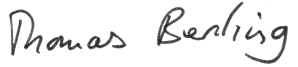 Thomas Berling